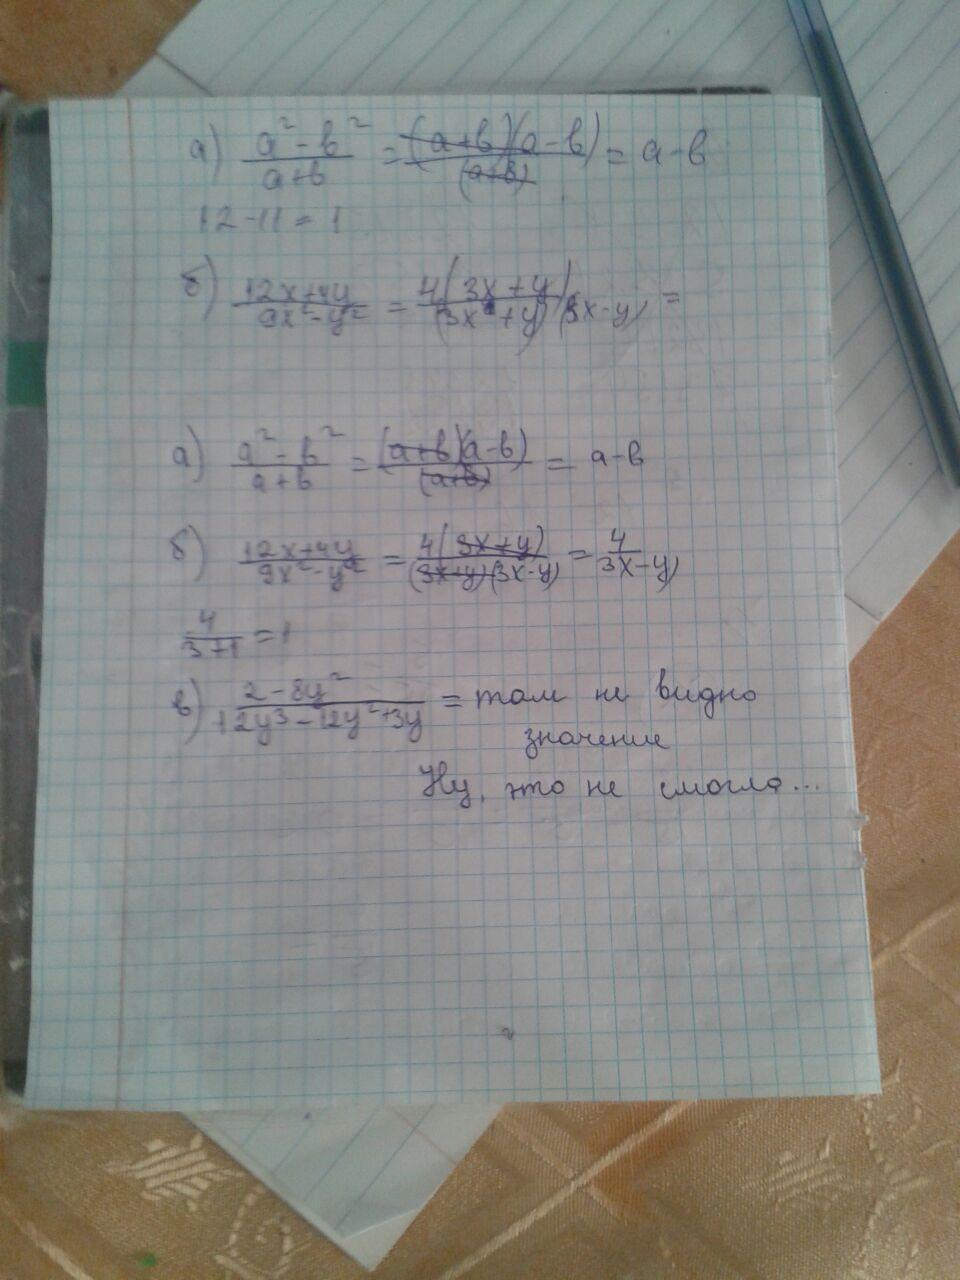 а) a² - b² / a+b = (a+b)(a-b) / (a+b) = a-b
12-11=1
б) 12x+4y / 9x²-y² = 4(3x+y) / (3x+y)(3x-y) =
а) a² - b² / a+b = (a+b)(a-b) / (a+b) = a-b
б) 12x+4y / 9x²-y² = 4(3x+y) / (3x+y)(3x-y) = 4 / 3x-y
4 / 3+1 = 1
в) 2-8y² / 12y³-12y²+3y = там не видно
значение
Ну, это не смогла...